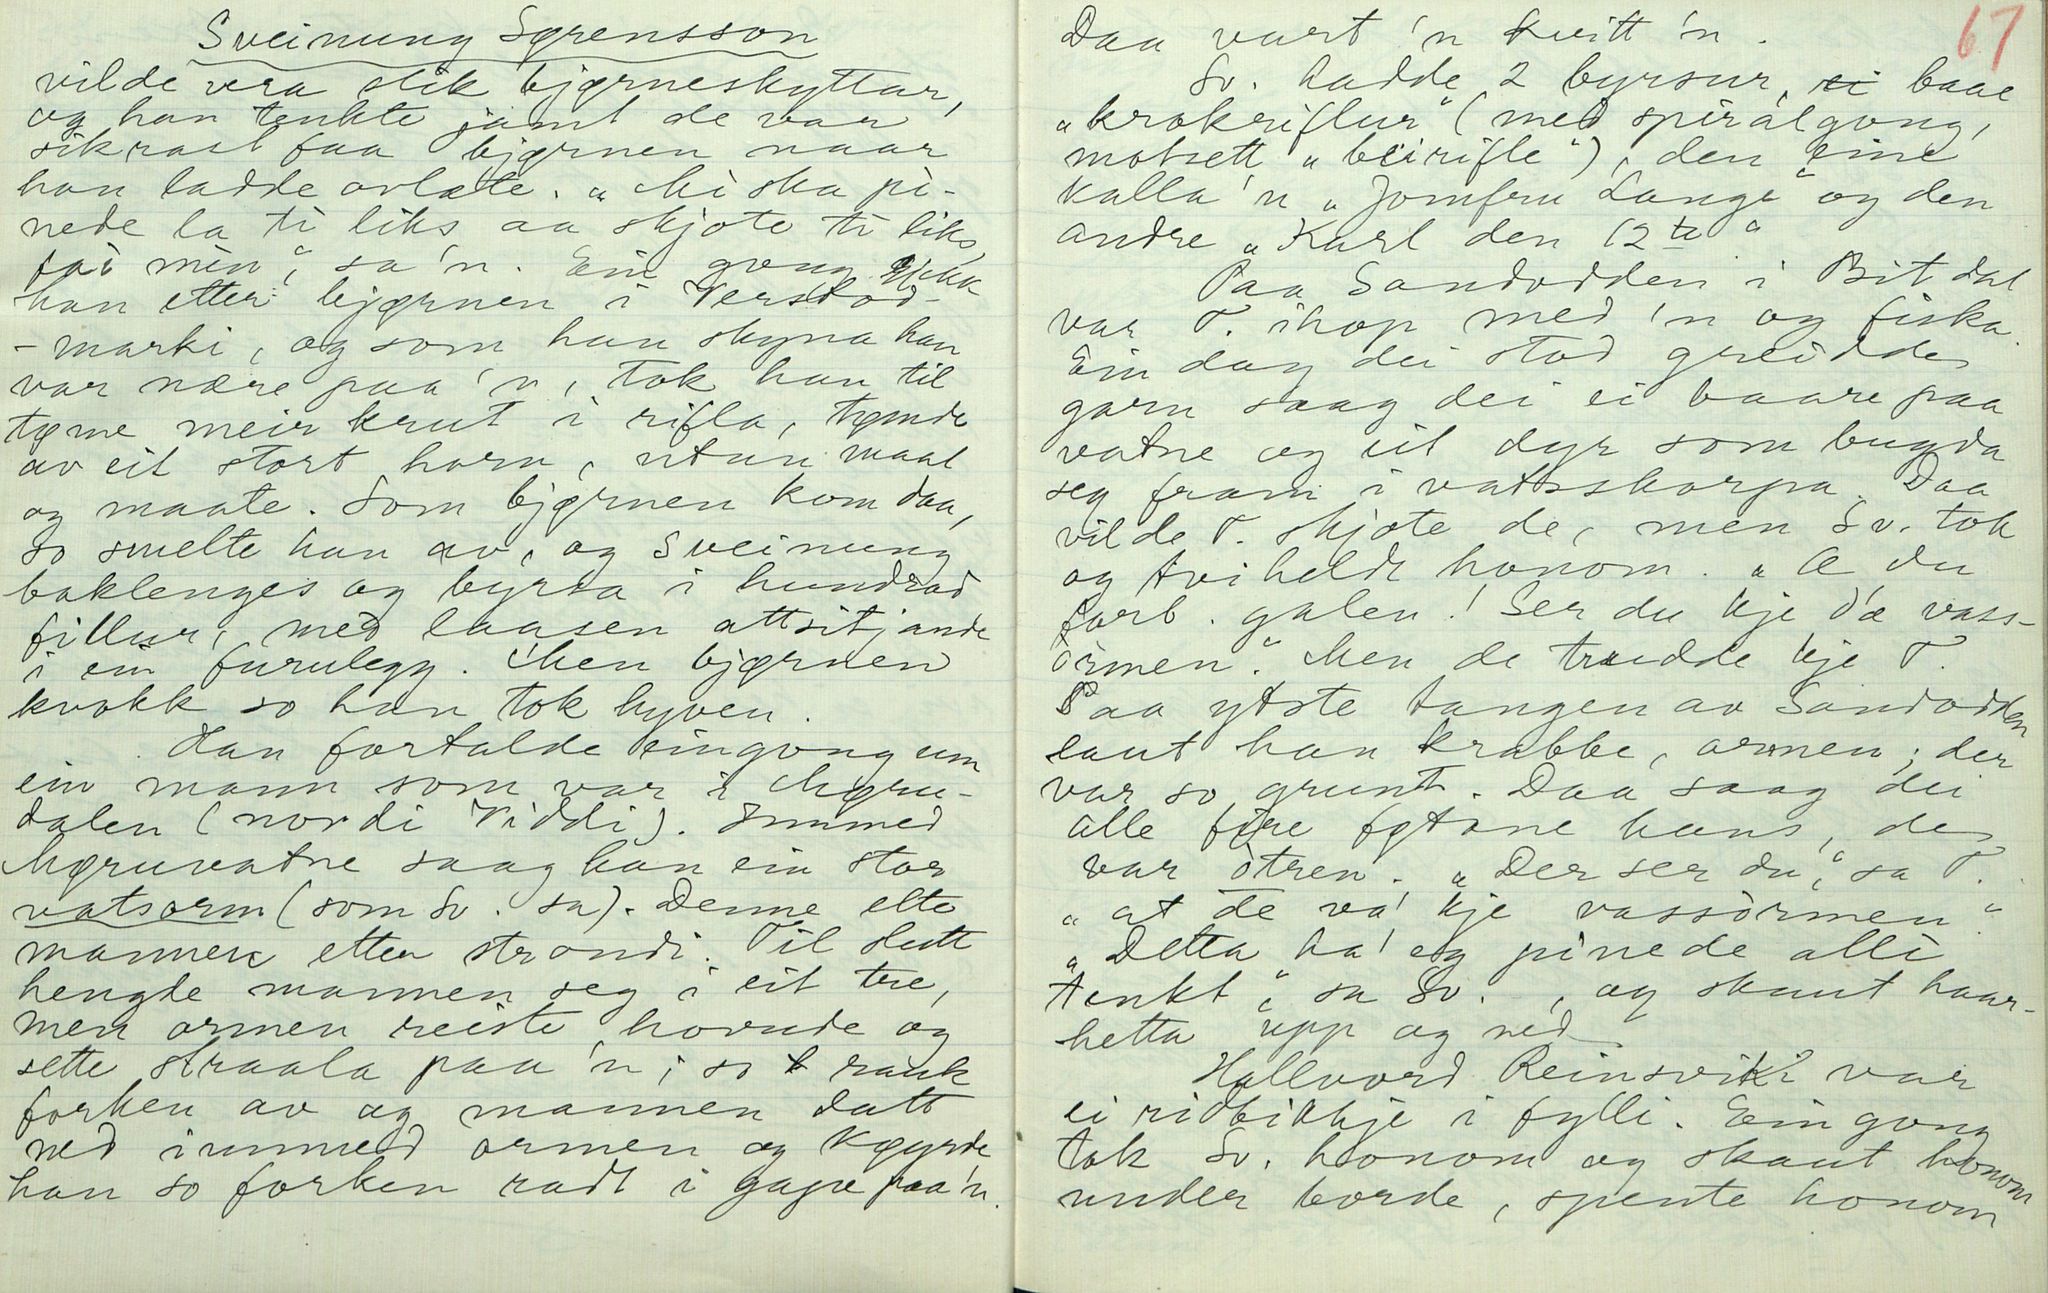 Sveinung Sørensson
vilde vera slik bjørneskyttar,
og han tenkte jamt de var
sikrast faa bjørnen naar
han ladde ovlæte. „Mi ska pi-
nede la ti liks aa skjote ti liks,
fai min“, sa'n. Ein gong gjekk
han etter bjørnen i
-marki, og som han skyna han
var nære paa'n, tok han til
tøme meir krut i rifla, tømde
av eit stort horn, utan maal
og maate. Som bjørnen kom daa,
so smelte han av, og Sveinung
baklenges og byrsa i hundrad
fillur, med laasen attsitjande
i ein furulegg. Men bjørnen
kvakk so han tok kyven.
Han fortalde eingong um
ein mann som var i Møru-
dalen (nordi Viddi). Innmed
Møruvatne saag han ein stor
vatsorm (som Sv. sa). Denne elte
mannen etter strondi. Til slutt
hengde mannen seg i eit tre,
men ormen reiste hovude og
sette straala paa'n; so rauk
forken av og mannen datt
ned innmed ormen og køyrde
han so forken radt i gape paa'n.
67
Daa vart 'n kvitt 'n.
Sv. hadde 2 byrsur, baae
„krokriflur“ (med spiralgong,
motsett „beirifle“), den eine
kalla'n „Jomfru Lange“ og den
andre „Karl den 12te“
Paa Sandodden i Bitdal
var T. ihop med 'n og fiska.
Ein dag dei stod greidde
garn saag dei ei baare paa
vatne og eit dyr som bugda
seg fram i vatsskorpa. Daa
vilde T. skjote de, men Sv. tok
og tviheldt honom. „Æ du
forb. galen! Ser du kje d'æ vass-
ormen“. Men de trudde kje T.
Paa ytste tangen av Sandodden
laut han krabbe, ormen; der
var so grunt. Daa saag dei
alle fire føtane hans, de
var otren. „Der ser du“, sa T.
„at de va' kje vassormen“.
„Detta ha' eg pinede alli
tenkt“, sa Sv., og skaut haar-
hetta upp og ned
Hallvord Reinsvik var
ei ridbikkje i fylli. Ein gong
tok Sv. honom og skaut honom
under borde, spente honom